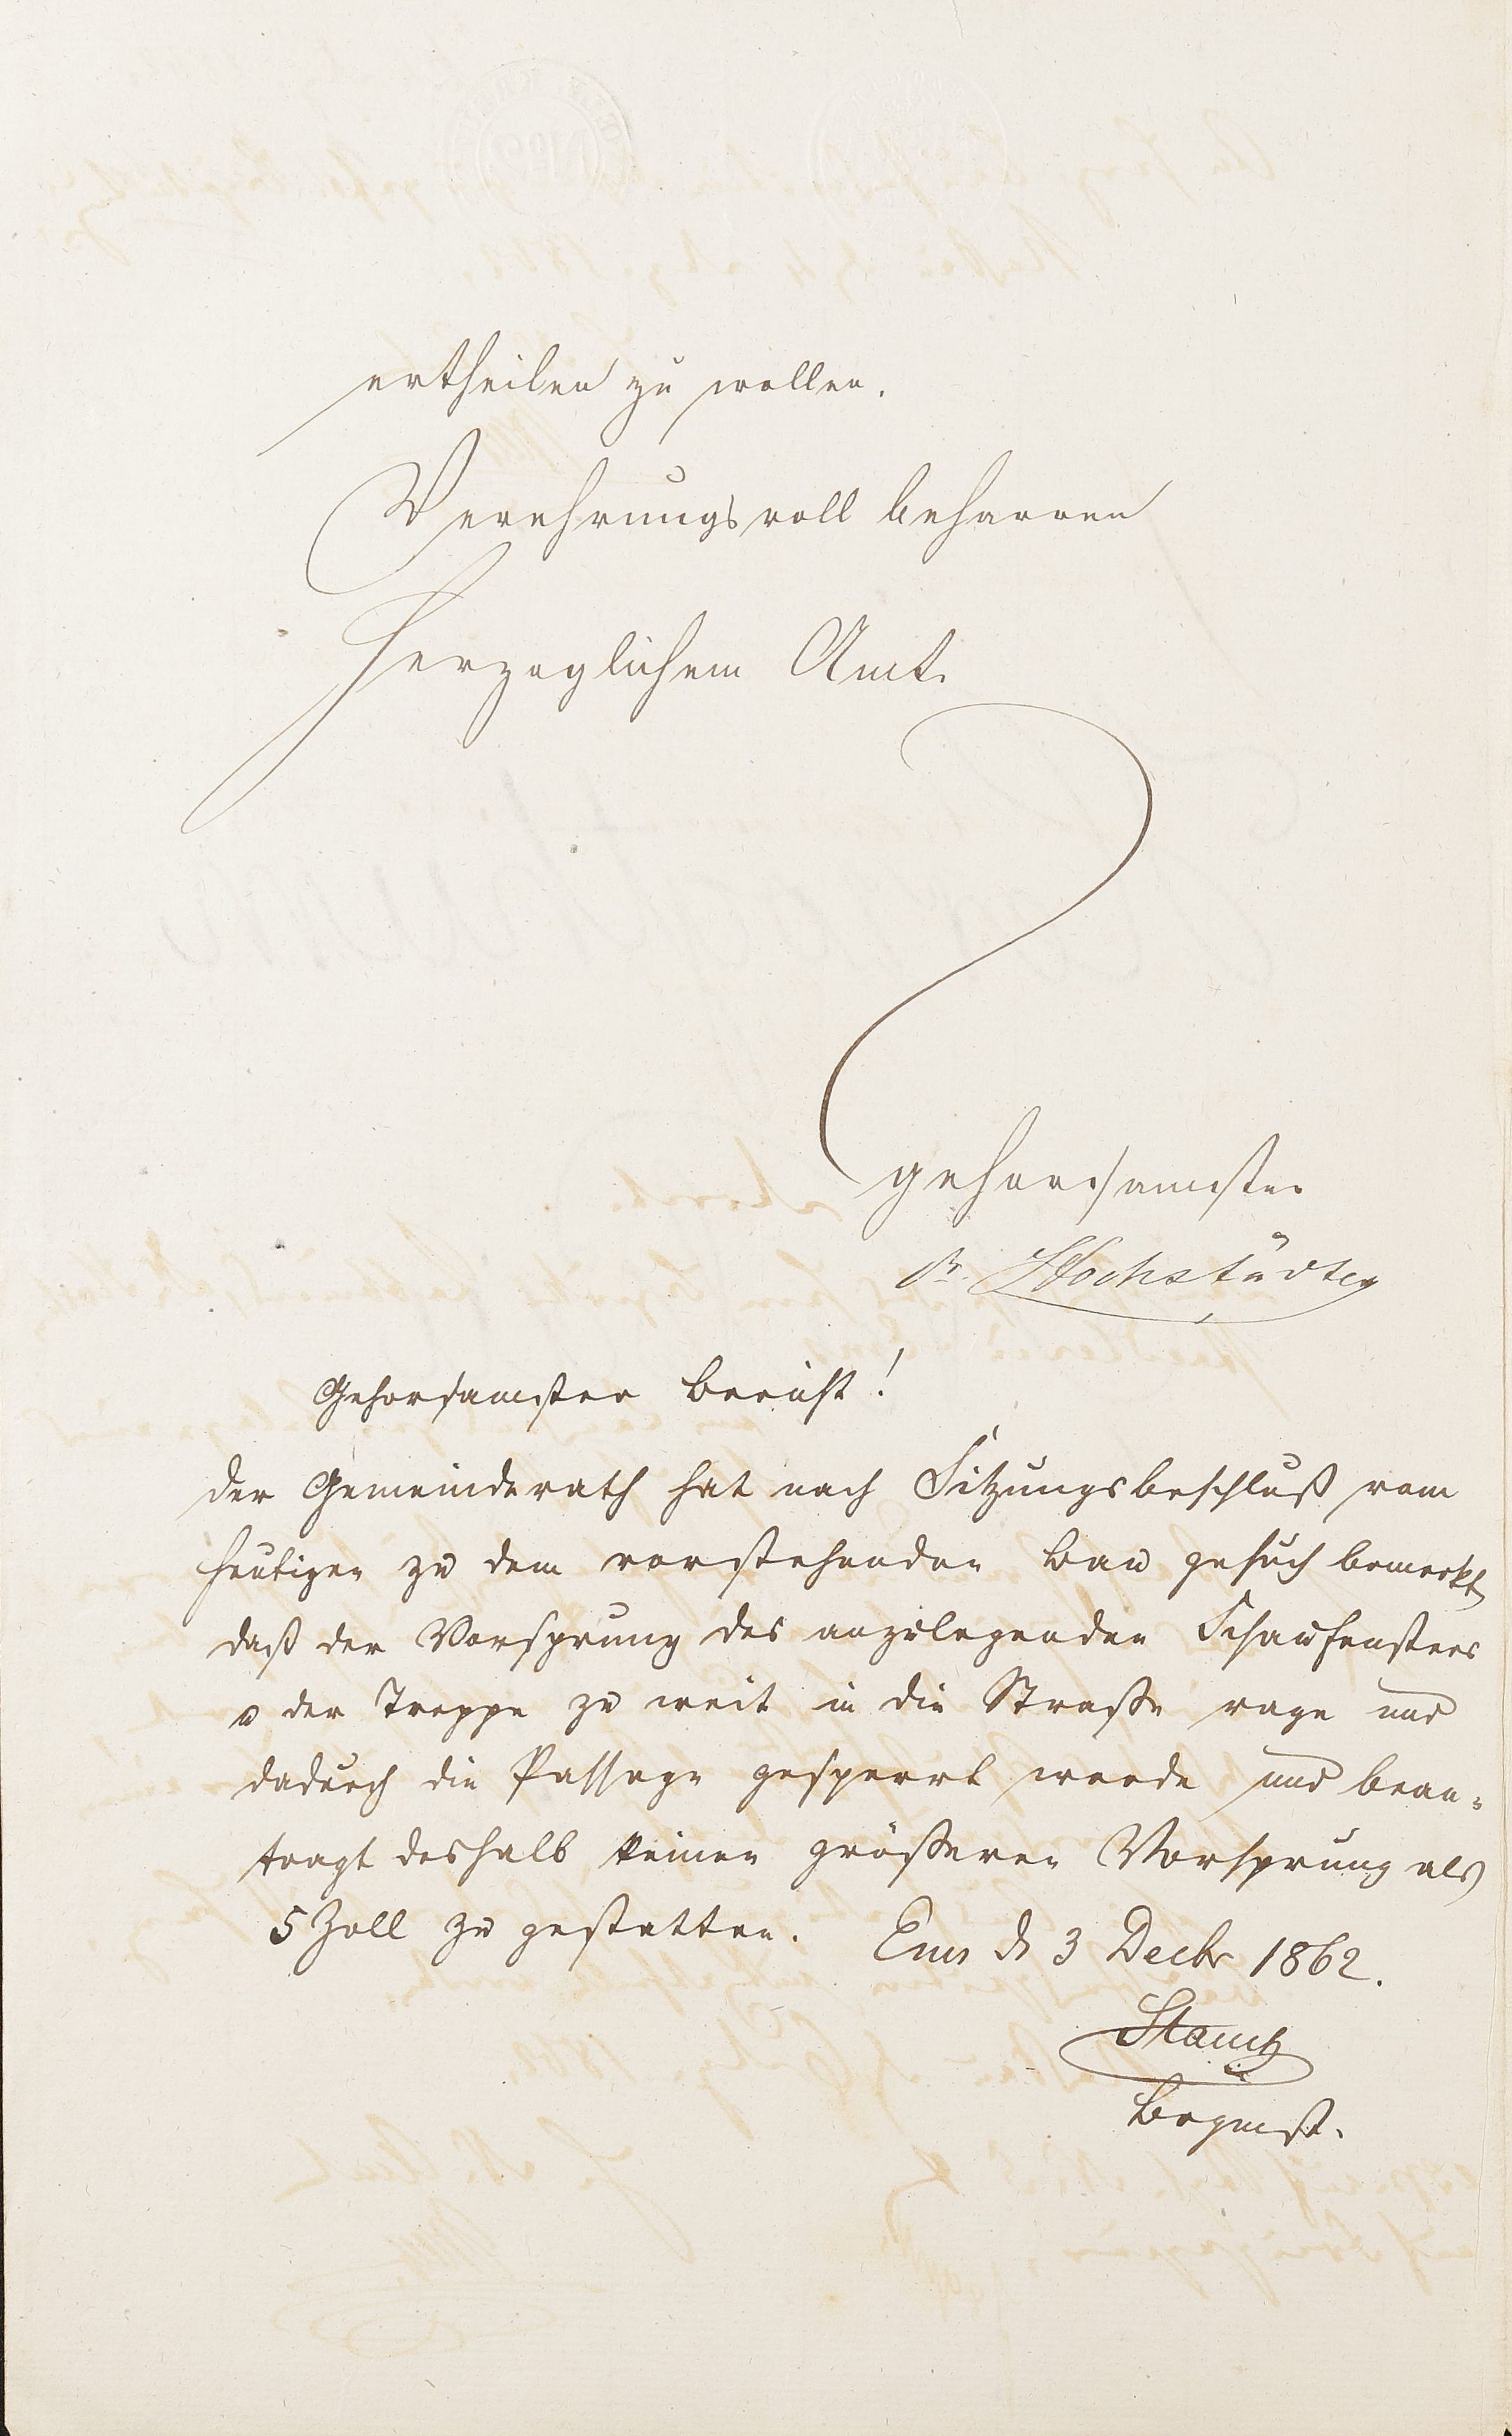 ertheilen zu wollen.
Verehrungsvoll beharren
Herzoglichem Amt.
gehorsamster
Dr. Hochstädter
Gehorsamster Bericht!
der Gemeinderath hat nach Sitzungsbeschluß vom
heutigen zu dem vorstehenden Bau gesuch bemerkt
daß der Vorsprung des anzulegenden Schaufensters
u der Treppe zu weit in die Straße rage und
dadurch die Passage gesperrt werde und bean-
tragt deshalb keinen größeren Vorsprung als
5 Zoll zu gestatten. Ems d 3 Decbr 1862.
Brgmst.